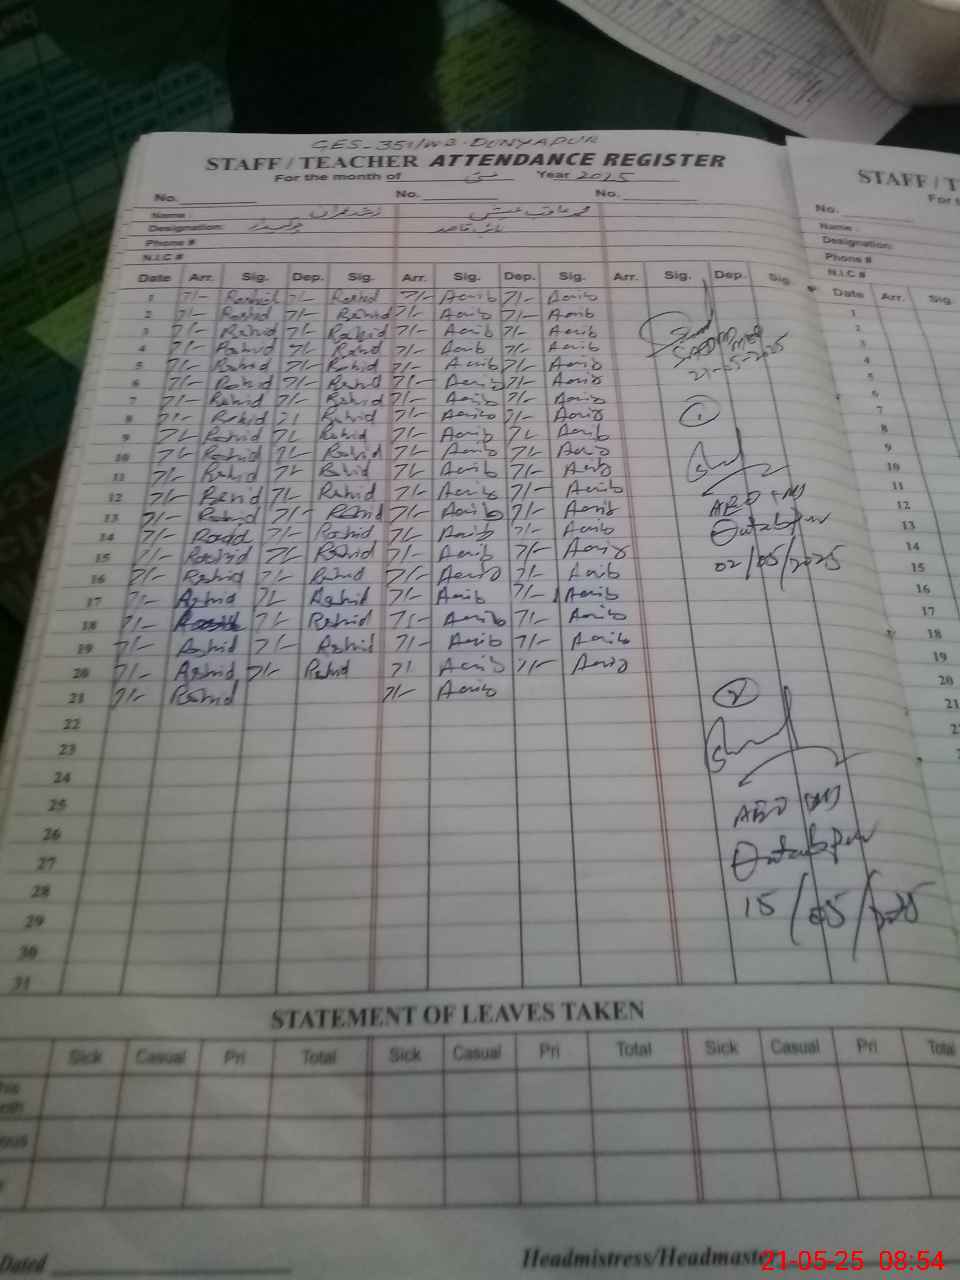 GES-351/WB-DUNYAPUR
STAFF / TEACHER ATTENDANCE REGISTER
For the month of مئی Year 2025
No. No. No.
Name : راشد عمران محمد عاقب
Designation: چوکیدار نائب قاصد
Phone #
N.I.C #
Date Arr. Sig. Dep. Sig. Arr. Sig. Dep. Sig. Arr. Sig. Dep. Sig.
1 7/- Rashid 7/- Rashid 7/- Aaqib 7/- Aaqib
2 7/- Rashid 7/- Rashid 7/- Aaqib 7/- Aaqib
3 7/- Rashid 7/- Rashid 7/- Aaqib 7/- Aaqib
4 7/- Rashid 7/- Rashid 7/- Aaqib 7/- Aaqib
5 7/- Rashid 7/- Rashid 7/- Aaqib 7/- Aaqib
6 7/- Rashid 7/- Rashid 7/- Aaqib 7/- Aaqib
7 7/- Rashid 7/- Rashid 7/- Aaqib 7/- Aaqib
8 7/- Rashid 7/ Rashid 7/- Aaqib 7/- Aaqib
9 7/- Rashid 7/- Rashid 7/- Aaqib 7/- Aaqib
10 7/- Rashid 7/- Rashid 7/- Aaqib 7/- Aaqib
11 7/- Rashid 7/- Rashid 7/- Aaqib 7/- Aaqib
12 7/- Rashid 7/- Rashid 7/- Aaqib 7/- Aaqib
13 7/- Rashid 7/- Rashid 7/- Aaqib 7/- Aaqib
14 7/- Rashid 7/- Rashid 7/- Aaqib 7/- Aaqib
15 7/- Rashid 7/- Rashid 7/- Aaqib 7/- Aaqib
16 7/- Rashid 7/- Rashid 7/- Aaqib 7/- Aaqib
17 7/- Rashid 7/- Rashid 7/- Aaqib 7/- Aaqib
18 7/- 7/- Rashid 7/- Aaqib 7/- Aaqib
19 7/- Rashid 7/- Rashid 7/- Aaqib 7/- Aaqib
20 7/- Rashid 7/- Rashid 7/ Aaqib 7/- Aaqib
21 7/- Rashid 7/- Aaqib
22
23
24
25
26
27
28
29
30
31
21-05-2025
1
AEO (M)
Qutabpur
02/05/2025
2
AEO (M)
Qutabpur
15/05/2025
STATEMENT OF LEAVES TAKEN
Sick Casual Pri Total Sick Casual Pri Total Sick Casual Pri Total
Dated Headmistress/Headmaster
STAFF / T
No.
Name :
Designation:
Phone #
N.I.C #
Date Arr. Sig.
1
2
3
4
5
6
7
8
9
10
11
12
13
14
15
16
17
18
19
20
21
21-05-25 08:54